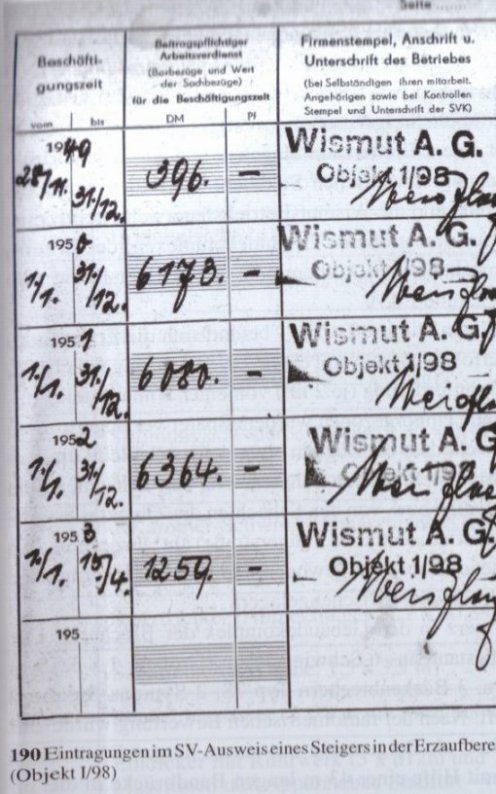 Seite
Beschäfti-
gungszeit
vom bis
Beitragspflichtiger
Arbeitsverdienst
(Barbezüge und Wert
der Sachbezüge)
für die Beschäftigungszeit
DM Pf
Firmenstempel, Anschrift u.
Unterschrift des Betriebes
(bei Selbständigen ihren mitarbeit.
Angehörigen sowie bei Kontrollen
Stempel und Unterschrift der SVK)
1949
28/11. 31/12. 396. –
Wismut A. G.
Objekt 1/98
1950
1/1. 31/12. 6173. –
Wismut A. G.
Objekt 1/98
1951
1/1. 31/12. 6080. –
Wismut A. G.
Objekt 1/98
1952
1/1. 31/12. 6364. –
Wismut A. G.
Objekt 1/98
1953
1/1. 15/4. 1259. –
Wismut A. G.
Objekt 1/98
195
190 Eintragungen im SV-Ausweis eines Steigers in der Erzaufbere
(Objekt I/98)